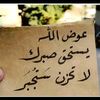 عوض الله
يستحق صبرك
لا تحزن ستجبر